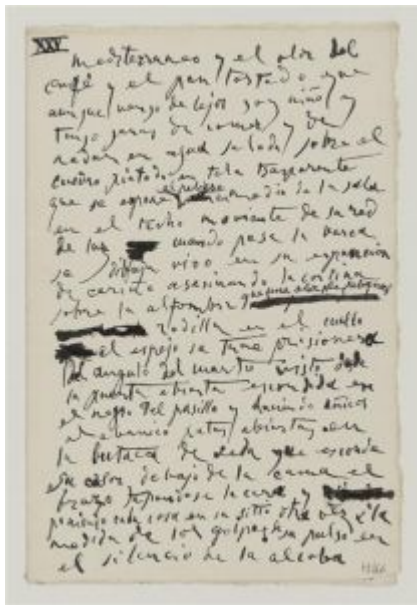 XXV
mediterraneo y el olor del
café y el pan tostado que
aunque vengo de lejos soy niño y
tengo ganas de comer y de
nadar en agua salada sobre el
cuerpo pintado en tela trasparente
que se en medio de la sala
en el techo de su red
de luz cuando pasa la barca
se dibuja vivo en su expansión
de caricia asesinando la cortina
sobre la alfombra que
rodilla en el cuello
el espejo se tiene prisionera
del angulo del cuarto visto desde
la puerta abierta escondida en
el negro del pasillo y haciendo añicos
el abanico patas abiertas en
la butaca de seda que escondía
debajo de la cama el
brazo la cera y
cosa en su sitio otra vez a la
medida de los golpes su pulso en
el silencio de la alcoba